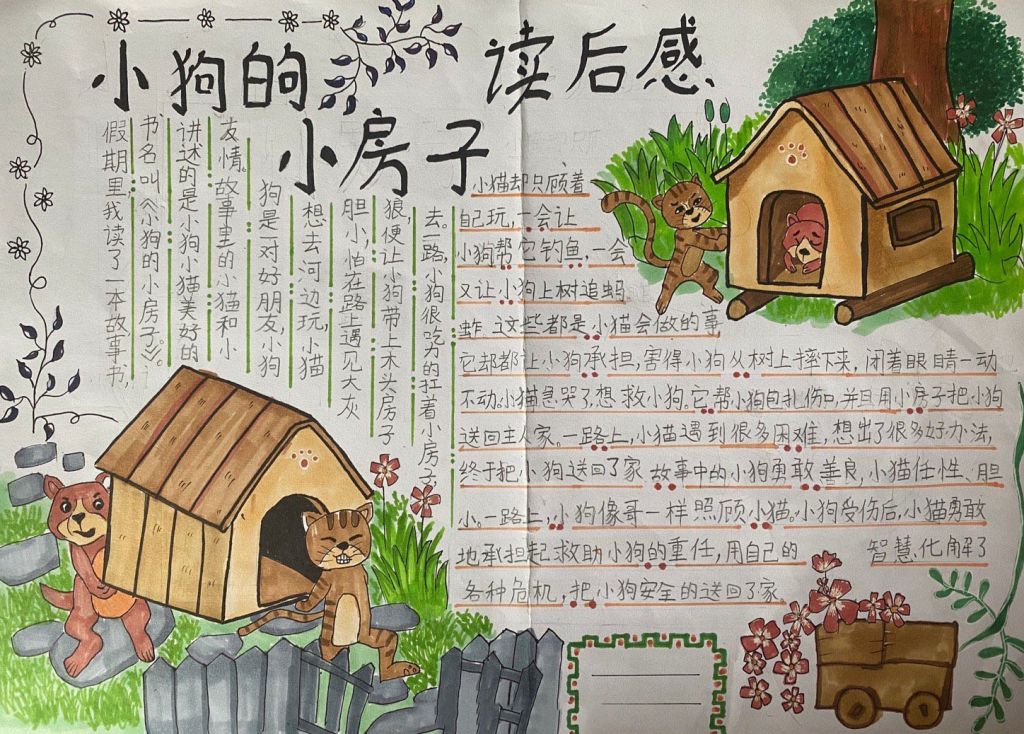 小狗的
小房子
读后感
假期里,我读了一本故事书,
书名叫《小狗的小房子》。
讲述的是小狗小猫美好的
友情。故事里的小猫和小
狗是一对好朋友,小狗
想去河边玩,小猫
胆小,怕在路上遇见大灰
狼,便让小狗带上木头房子
去。一路,小狗很吃力的扛着小房子,
小猫却只顾着
自己玩,一会让
小狗帮它钓鱼,一会
又让小狗上树追蚂
蚱。这些都是小猫会做的事
它却都让小狗承担,害得小狗从树上摔下来,闭着眼睛一动
不动。小猫急哭了,想救小狗。它帮小狗包扎伤口,并且用小房子把小狗
送回主人家。一路上,小猫遇到很多困难,想出了很多好办法,
终于把小狗送回了家。故事中的小狗勇敢善良,小猫任性,胆
小。一路上,小狗像哥一样照顾小猫。小狗受伤后,小猫勇敢
地承担起救助小狗的重任,用自己的 智慧化解了
各种危机,把小狗安全的送回了家